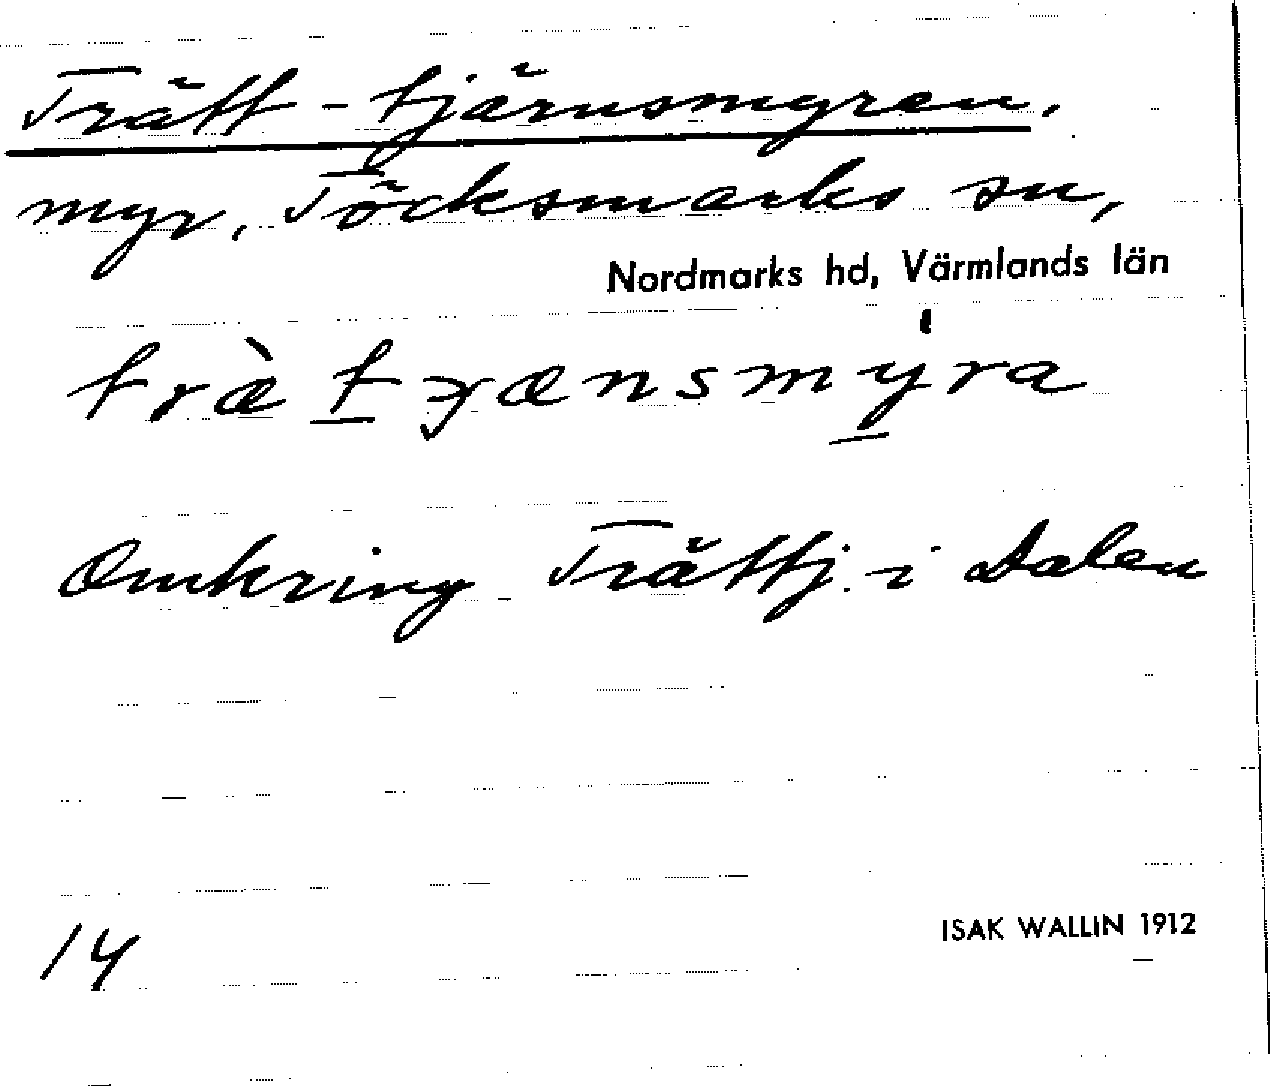 Trätt-tjärnsmyren.
myr, Töcksmarks sn,
Nordmarks hd, Värmlands län
træ̀tjænsmýra
Omkring Trättj. i Dalen
14
ISAK WALLIN 1912